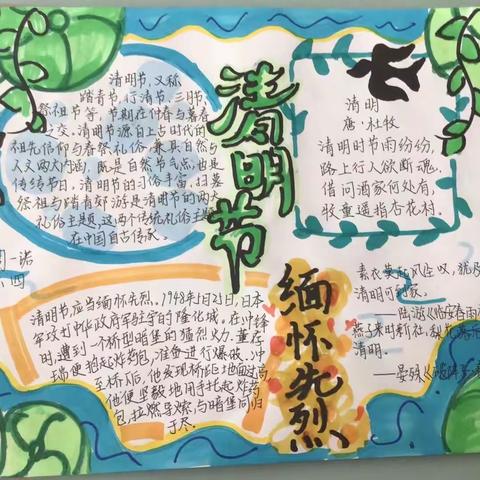 清明节，又称
踏青节，行清节，三月节，
祭祖节等，节期在仲春与暮春
之交。清明节源自上古时代的
祖先信仰与春祭礼俗，兼具自然与
人文两大内涵，既是自然节气点，也是
传统节日，清明节的习俗丰富，扫墓
祭祖与踏青郊游是清明节的两大
礼俗主题，这两个传统礼俗主题
在中国自古传承。
清明节
清明
唐·杜牧
清明时节雨纷纷，
路上行人欲断魂，
借问酒家何处有，
牧童遥指杏花村。
一诺
四
清明节应当缅怀先烈。1948年
日本
军攻打
政府军驻守的隆化城。在冲锋
时遭到一个桥型暗堡的猛烈火力。董存
瑞便抱起炸药包，准备进行爆破。冲
至桥后，他发现桥距地面过高，
他便坚毅地用手托起炸药
包，拉燃导索，与暗堡同归
于尽。
缅怀先烈
素衣莫起风尘叹，犹及
清明可到家。
——陆游《临安春雨
燕子来时新社，梨花落
清明。
——晏殊《破阵子